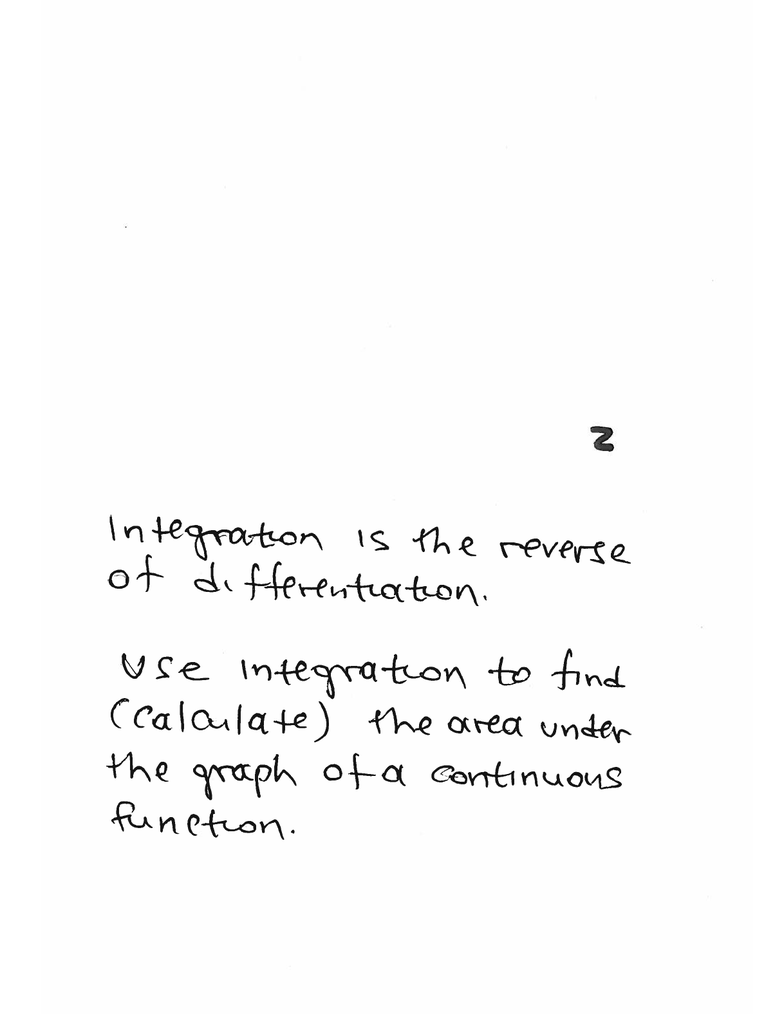 2
Integration is the reverse
of differentiation.
Use integration to find
(calculate) the area under
the graph of a continuous
function.